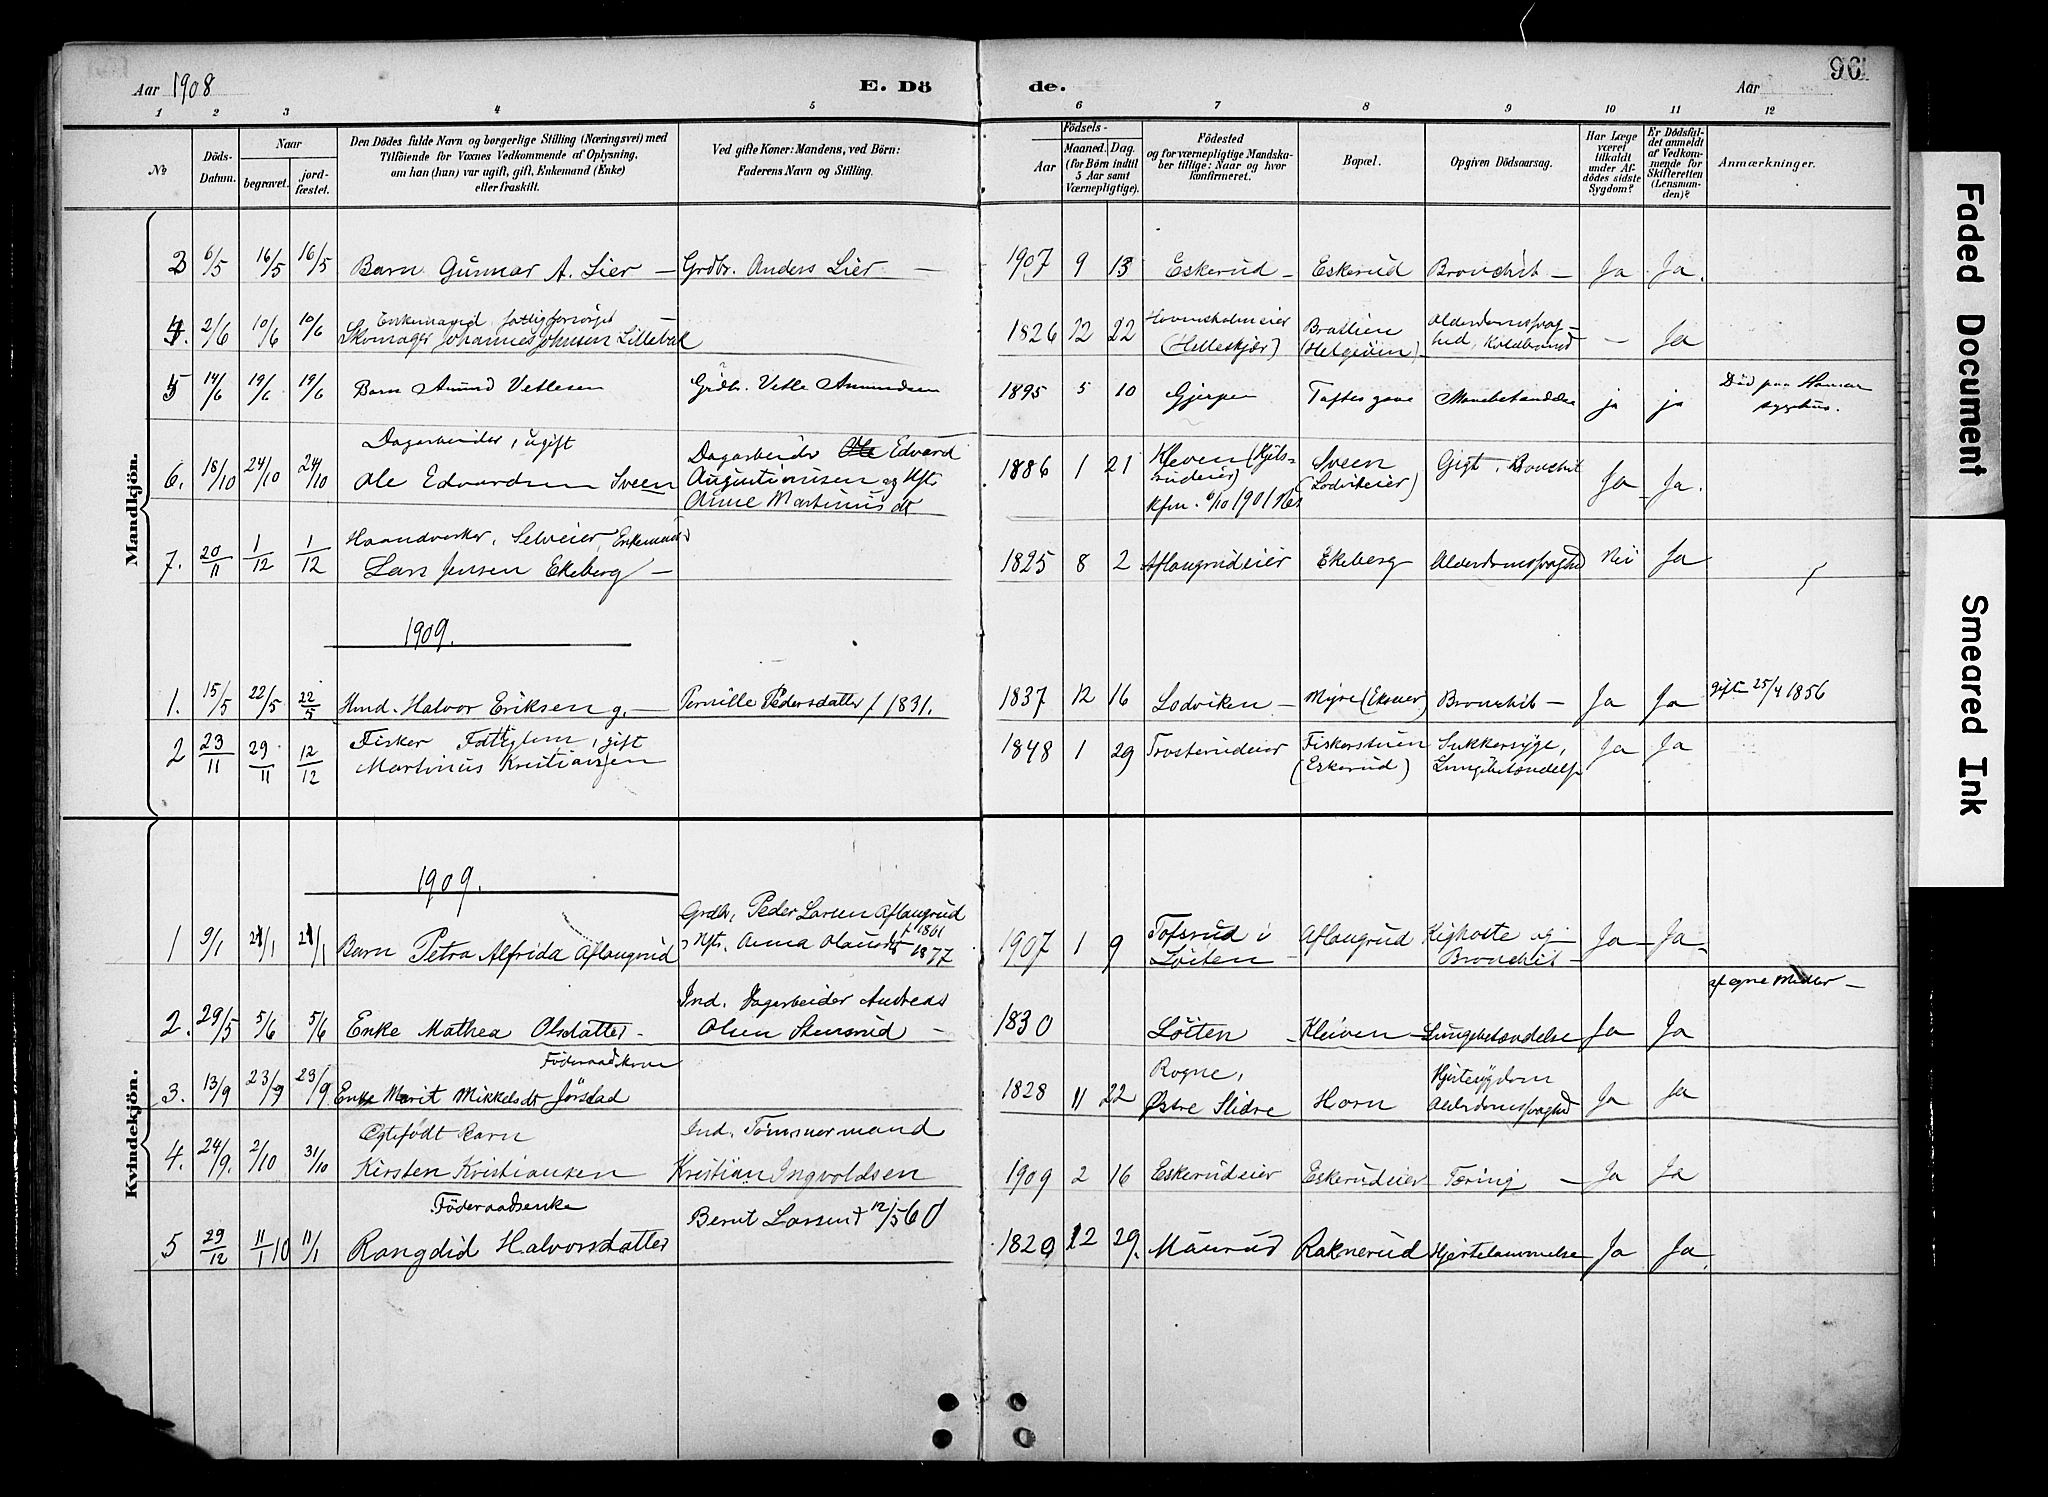 Aar 1908
E. Döde.
Aar
96
1 2 3 4 5 6 7 8 9 10 11 12
№
Döds-Datum.
Naar
begravet.
jord-fæstet.
Den Dödes fulde Navn og borgerlige Stilling (Næringsvei) med
Tilföiende for Voxnes Vedkommende af Oplysning,
om han (hun) var ugift, gift, Enkemand (Enke)
eller fraskilt.
Ved gifte Koner: Mandens, ved Börn:
Faderens Navn og Stilling.
Födsels-
Aar
Maaned.
Dag.
(for Börn indtil
5 Aar samt
Værnepligtige).
Födested
og for værnepligtige Mandska-
ber tillige: Naar og hvor
konfirmeret.
Bopæl.
Opgiven Dödsaarsag.
Har Læge
været
tilkaldt
under Af-
dödes sidste
Sygdom?
Er Dödsfal-
det anmeldt
af Vedkom-
mende for
Skifteretten
(Lensman-
den)?
Anmærkninger.
Mandkjön.
3 6/5 16/5 16/5 Barn Gunnar A. Lier — Grdbr. Anders Lier — 1907 9 13 Eskerud — Eskerud Bronchit — Ja Ja.
4. 2/6 10/6 10/6 Enkemand, fattigforsörget
Skomager Johannes Johnsen Lillebæk 1826 12 22 Hovinsholmeier
(Helleskjær) Bratlien
(Helgeöien) Alderdomssvag-
hed, Koldbrand — Ja
5 14/6 19/6 19/6 Barn Amund Vetlesen Grdbr. Vetle Amundsen 1895 5 10 Gjerpen Toftes gave Mavebetændelse ja ja Död paa Hamar
sygehus.
6. 18/10 24/10 24/10 Dagarbeider, ugift
Ole Edvardsen Sveen Dagarbeider Ole Edvard
Augustinusen og Hst.
Anne Martinusdt 1886 1 21 Kleven (Kjels-
rudeier)
Kfm. 6/10 1901 Nes Sveen
(Lodvikeier) Gigt, Bronchit Ja Ja.
7. 20/11 1/12 1/12 Haandverker, Selveier, Enkemand
Lars Jensen Ekeberg — 1825 8 2 Aflangrudeier Ekeberg Alderdomssvaghed Nei Ja
1909.
1. 15/5 22/5 22/5 Hmd. Halvor Eriksen g. — Pernille Pedersdatter f 1831. 1837 12 16 Lodviken — Myre (Eksner) Bronchit — Ja Ja gift 25/4 1856
2 23/11 29/11 12/12 Fisker Fattiglem, gift
Martinus Kristiansen 1848 1 29 Trosterudeier Fiskerstuen
(Eskerud) Sukkersyge,
Lungebetændelse Ja Ja
Kvindekjön.
1909.
1 9/1 21/1 21/1 Barn Petra Alfrida Aflangrud Grdbr. Peder Larsen Aflangrud
f 1861
Hst. Anna Olausdt 1877 1907 1 9 Tofsrud i
Löiten — Aflangrud Kighoste og
Bronchit — Ja — Ja —
2. 29/5 5/6 5/6 Enke Mathea Olsdatter — Ind. Dagarbeider Andreas
Olsen Stensrud — 1830 Löiten Kleiven — Lungebetændelse Ja Ja af egne Midler —
3. 13/9 23/9 23/9 Föderaadskone
Enke Marit Mikkelsdt Jörstad 1828 11 22 Rogne,
Östre Slidre Horn Hjertesygdom
Alderdomssvaghed Ja Ja
4. 24/9. 2/10 31/10 Ægtefödt Barn
Kirsten Kristiansen Ind. Tömmermand
Kristian Ingvoldsen 1909 2 16 Eskerudeier Eskerudeier Tæring — Ja Ja
5 29/12 11/1 10 11/1 Föderaadsenke
Rangdid Halvorsdatter Bernt Larsen † 12/5 60 1829 12 29. Maurud Raknerud Hjertelammelse Ja Ja.
Faded Document
Smeared Ink